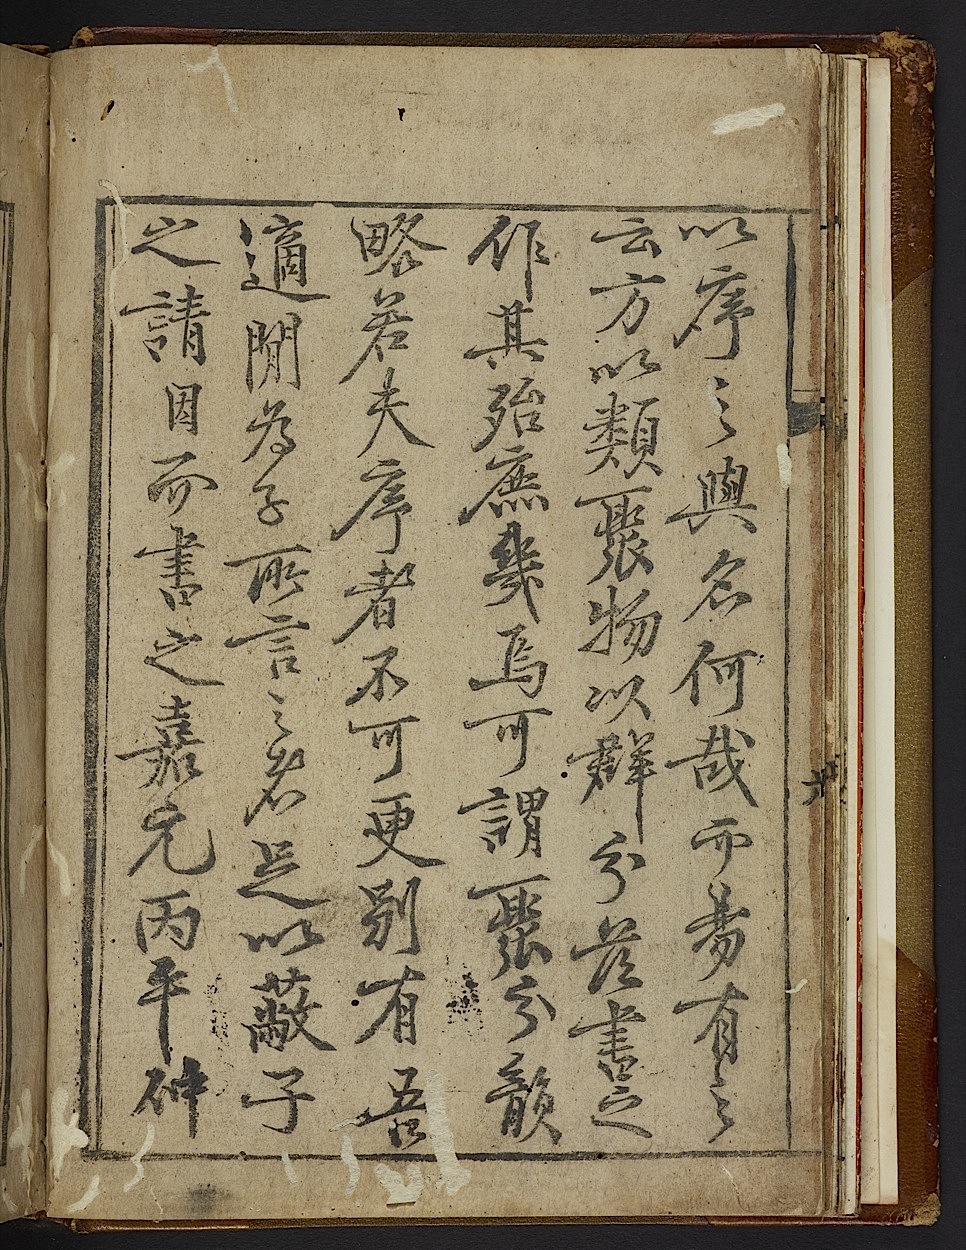 以序之與名何哉而易有之
云方以類聚物以群分茲書之
作其殆庶幾焉可謂聚分韻
略若夫序者不可更別有吾
適閒為子所言之者足以蔽子
之請因而書之嘉元丙午仲